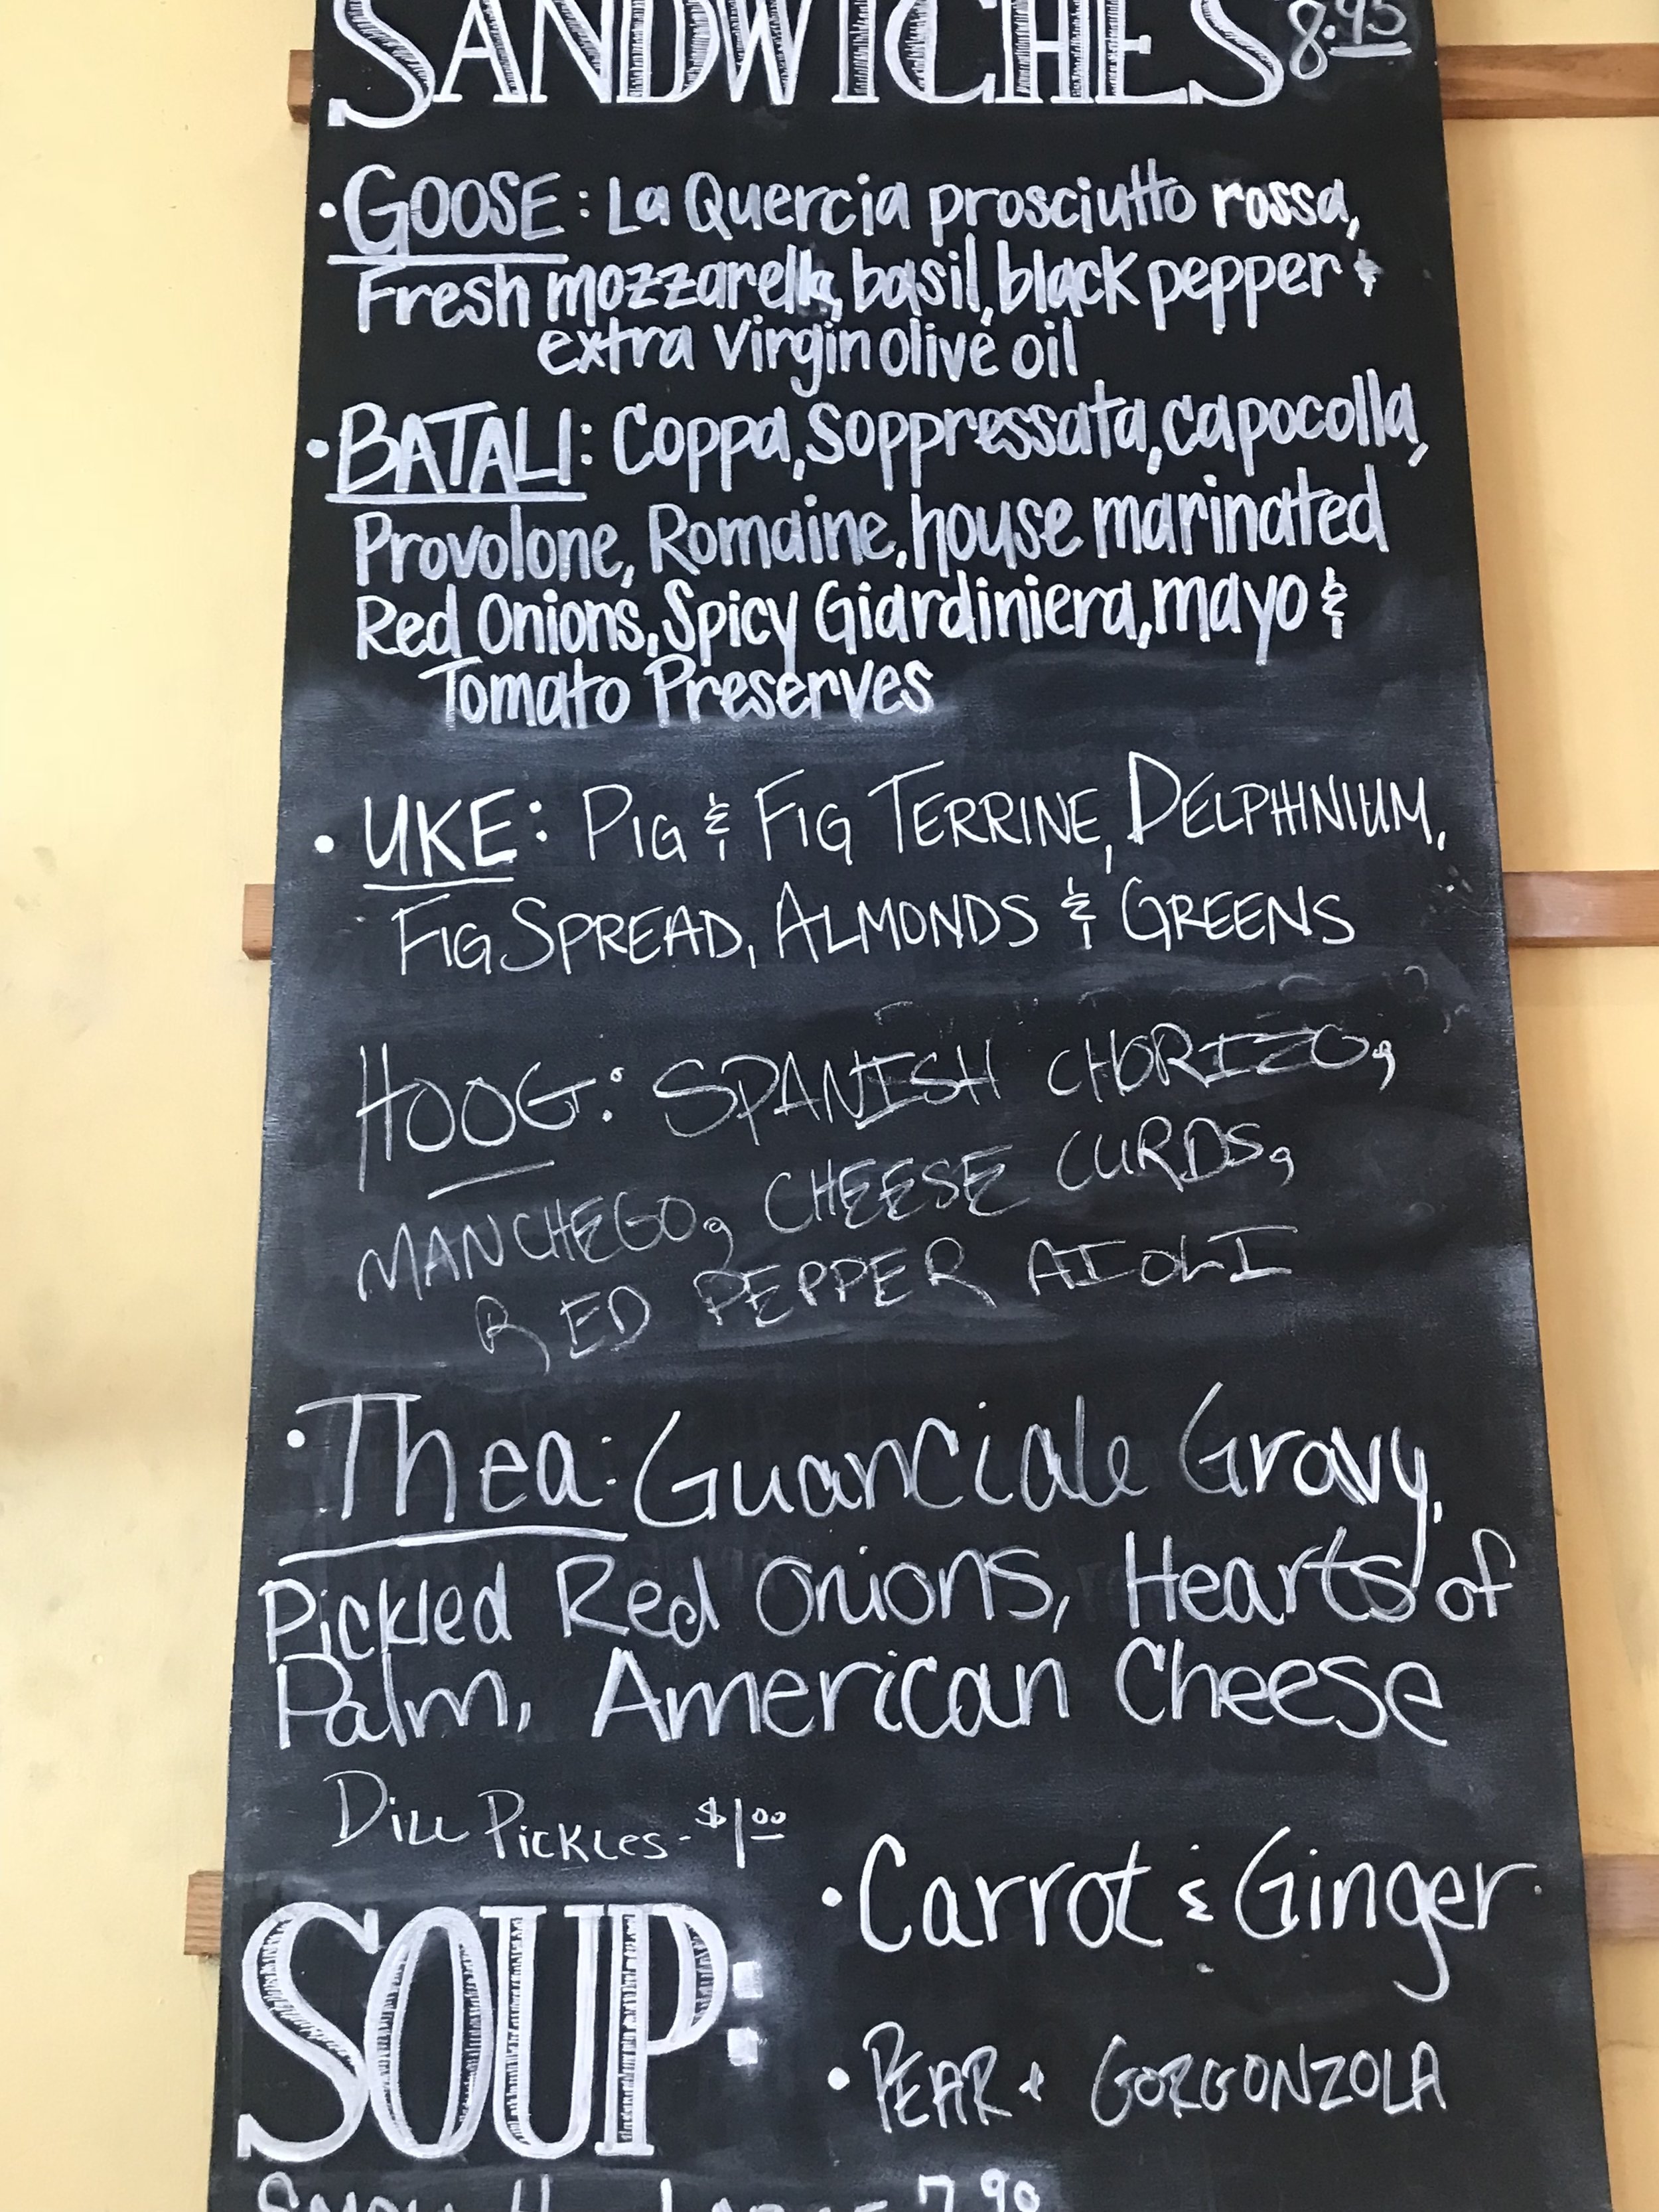 SANDWICHES 8.95
• GOOSE: La Quercia prosciutto rossa,
Fresh mozzarella, basil, black pepper &
extra virgin olive oil
• BATALI: Coppa, Soppressata, capocolla,
Provolone, Romaine, house marinated
Red Onions, Spicy Giardiniera, mayo &
Tomato Preserves
• UKE: PIG & FIG TERRINE, DELPHINIUM,
FIG SPREAD, ALMONDS & GREENS
HOOG: SPANISH CHORIZO,
MANCHEGO, CHEESE CURDS,
RED PEPPER AIOLI
• Thea: Guanciale Gravy,
Pickled Red Onions, Hearts of
Palm, American Cheese
DILL PICKLES - $1.00
SOUP:
• Carrot & Ginger
• PEAR + GORGONZOLA
7.90